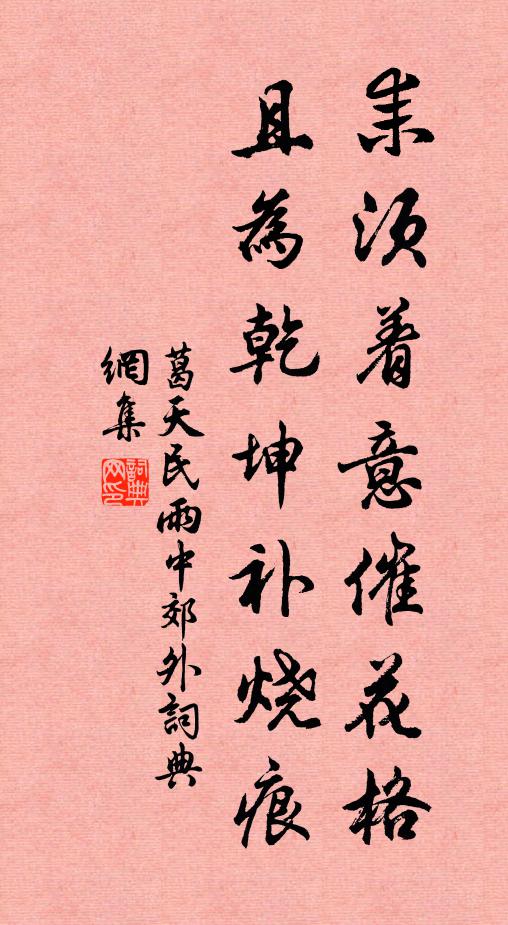 未须着意催花格
且為乾坤补烧痕
葛天民雨中郊外詞典
網集
詞典
网印